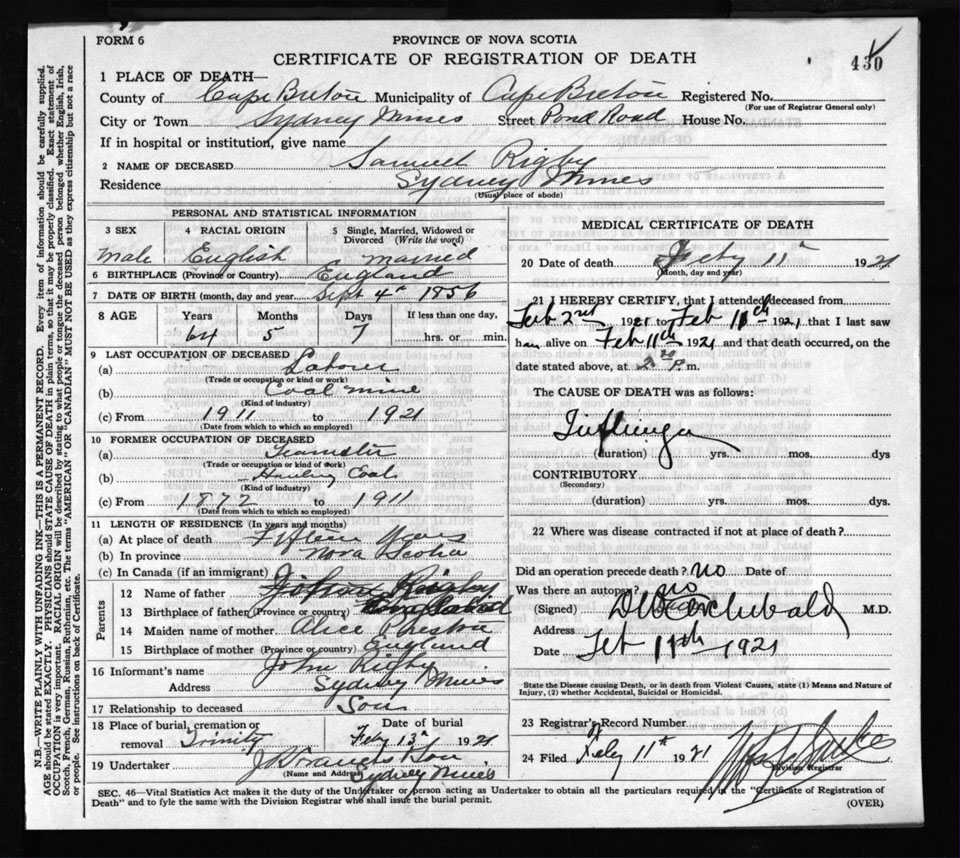 FORM 6
PROVINCE OF NOVA SCOTIA
CERTIFICATE OF REGISTRATION OF DEATH
430
1 PLACE OF DEATH—
County of Cape Breton Municipality of Cape Breton Registered No.
(For use of Registrar General only)
City or Town Sydney Mines Street Pond Road House No.
If in hospital or institution, give name
2 NAME OF DECEASED Samuel Rigby
Residence Sydney Mines
(Usual place of abode)
PERSONAL AND STATISTICAL INFORMATION
3 SEX 4 RACIAL ORIGIN 5 Single, Married, Widowed or Divorced (Write the word)
Male English Married
6 BIRTHPLACE (Province or Country) England
7 DATE OF BIRTH (month, day and year) Sept 4th 1856
8 AGE Years Months Days If less than one day,
64 5 7 hrs. or min.
9 LAST OCCUPATION OF DECEASED
(a) Laborer
(Trade or occupation or kind or work)
(b) Coal mine
(Kind of industry)
(c) From 1911 to 1921
(Date from which to which so employed)
10 FORMER OCCUPATION OF DECEASED
(a) Teamster
(Trade or occupation or kind of work)
(b) Hauling Coal
(Kind of industry)
(c) From 1872 to 1911
(Date from which to which so employed)
11 LENGTH OF RESIDENCE (In years and months)
(a) At place of death Fifteen Years
(b) In province Nova Scotia
(c) In Canada (if an immigrant)
Parents
12 Name of father Rigby
13 Birthplace of father (Province or country)
14 Maiden name of mother Alice Preston
15 Birthplace of mother (Province or country) England
16 Informant's name John Rigby
Address Sydney Mines
17 Relationship to deceased Son
18 Place of burial, cremation or removal Trinity Date of burial Feby 13th 1921
19 Undertaker Son
(Name and Address) Sydney Mines
MEDICAL CERTIFICATE OF DEATH
20 Date of death Feby 11th 1921
(Month, day and year)
21 I HEREBY CERTIFY, that I attended deceased from
Feb 2nd 1921 to Feb 11th 1921 that I last saw
alive on Feb 11th 1921 and that death occurred, on the
date stated above, at m.
The CAUSE OF DEATH was as follows:
Influenza
(duration) yrs. mos. dys
CONTRIBUTORY
(Secondary)
(duration) yrs. mos. dys
22 Where was disease contracted if not at place of death?
Did an operation precede death? no Date of
Was there an autopsy? no
(Signed) Archibald M.D.
Address
Date Feb 11th 1921
State the Disease causing Death, or in death from Violent Causes, state (1) Means and Nature of
Injury, (2) whether Accidental, Suicidal or Homicidal.
23 Registrar's Record Number
24 Filed Feby 11th 1921
Division Registrar
SEC. 46—Vital Statistics Act makes it the duty of the Undertaker or person acting as Undertaker to obtain all the particulars required in the "Certificate of Registration of
Death" and to fyle the same with the Division Registrar who shall issue the burial permit.
(OVER)
N.B.—WRITE PLAINLY WITH UNFADING INK—THIS IS A PERMANENT RECORD. Every item of information should be carefully supplied.
AGE should be stated EXACTLY. PHYSICIANS should STATE CAUSE OF DEATH in plain terms, so that it may be properly classified. Exact statement of
OCCUPATION is very important. RACIAL ORIGIN will be described by stating to what people or tongue the deceased person belonged whether English, Irish,
Scotch, French, German, Russian, Ruthenian, etc. The terms "AMERICAN" OR "CANADIAN" MUST NOT BE USED as they express citizenship but not a race
or people. See instructions on back of Certificate.